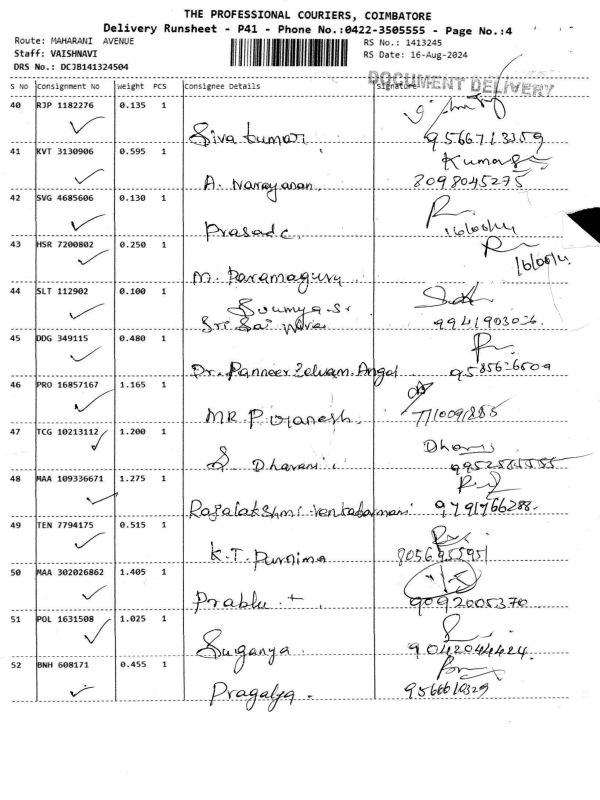 THE PROFESSIONAL COURIERS, COIMBATORE
Delivery Runsheet - P41 - Phone No.:0422-3505555 - Page No.:4
Route: MAHARANI AVENUE
RS No.: 1413245
Staff: VAISHNAVI
RS Date: 16-Aug-2024
DRS No.: DCJB141324504
DOCUMENT DELIVERY
S No Consignment No Weight PCS Consignee Details Signature
40 RJP 1182276 0.135 1
Siva kumari
41 KVT 3130906 0.595 1 Kumar
A. Narayanan 8098045275
42 SVG 4685606 0.130 1
Prasad c.
43 HSR 7200802 0.250 1
M. Paramaguru
44 SLT 112902 0.100 1
Soumya Sr
Sri Sai 9941903026.
45 DDG 349115 0.480 1
Dr. Panneer Zelvam Angal 9585626509
46 PRO 16857167 1.165 1
MR Piranesh. 7710091885
47 TCG 10213112 1.200 1
S Dharani
48 MAA 109336671 1.275 1
Rajalakshmi 9791766288.
49 TEN 7794175 0.515 1
K.T. Purnima 8056955951
50 MAA 302026862 1.405 1
Prabhu t 9092005370
51 POL 1631508 1.025 1
Suganya. 9042044424.
52 BNH 608171 0.455 1
Pragalya. 9566610329